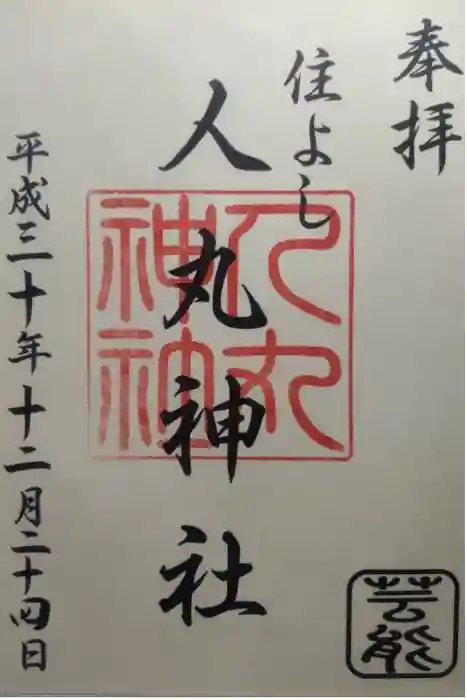 奉拝
住よし
人丸神社
人丸神社
芸能
平成三十年十二月二十四日